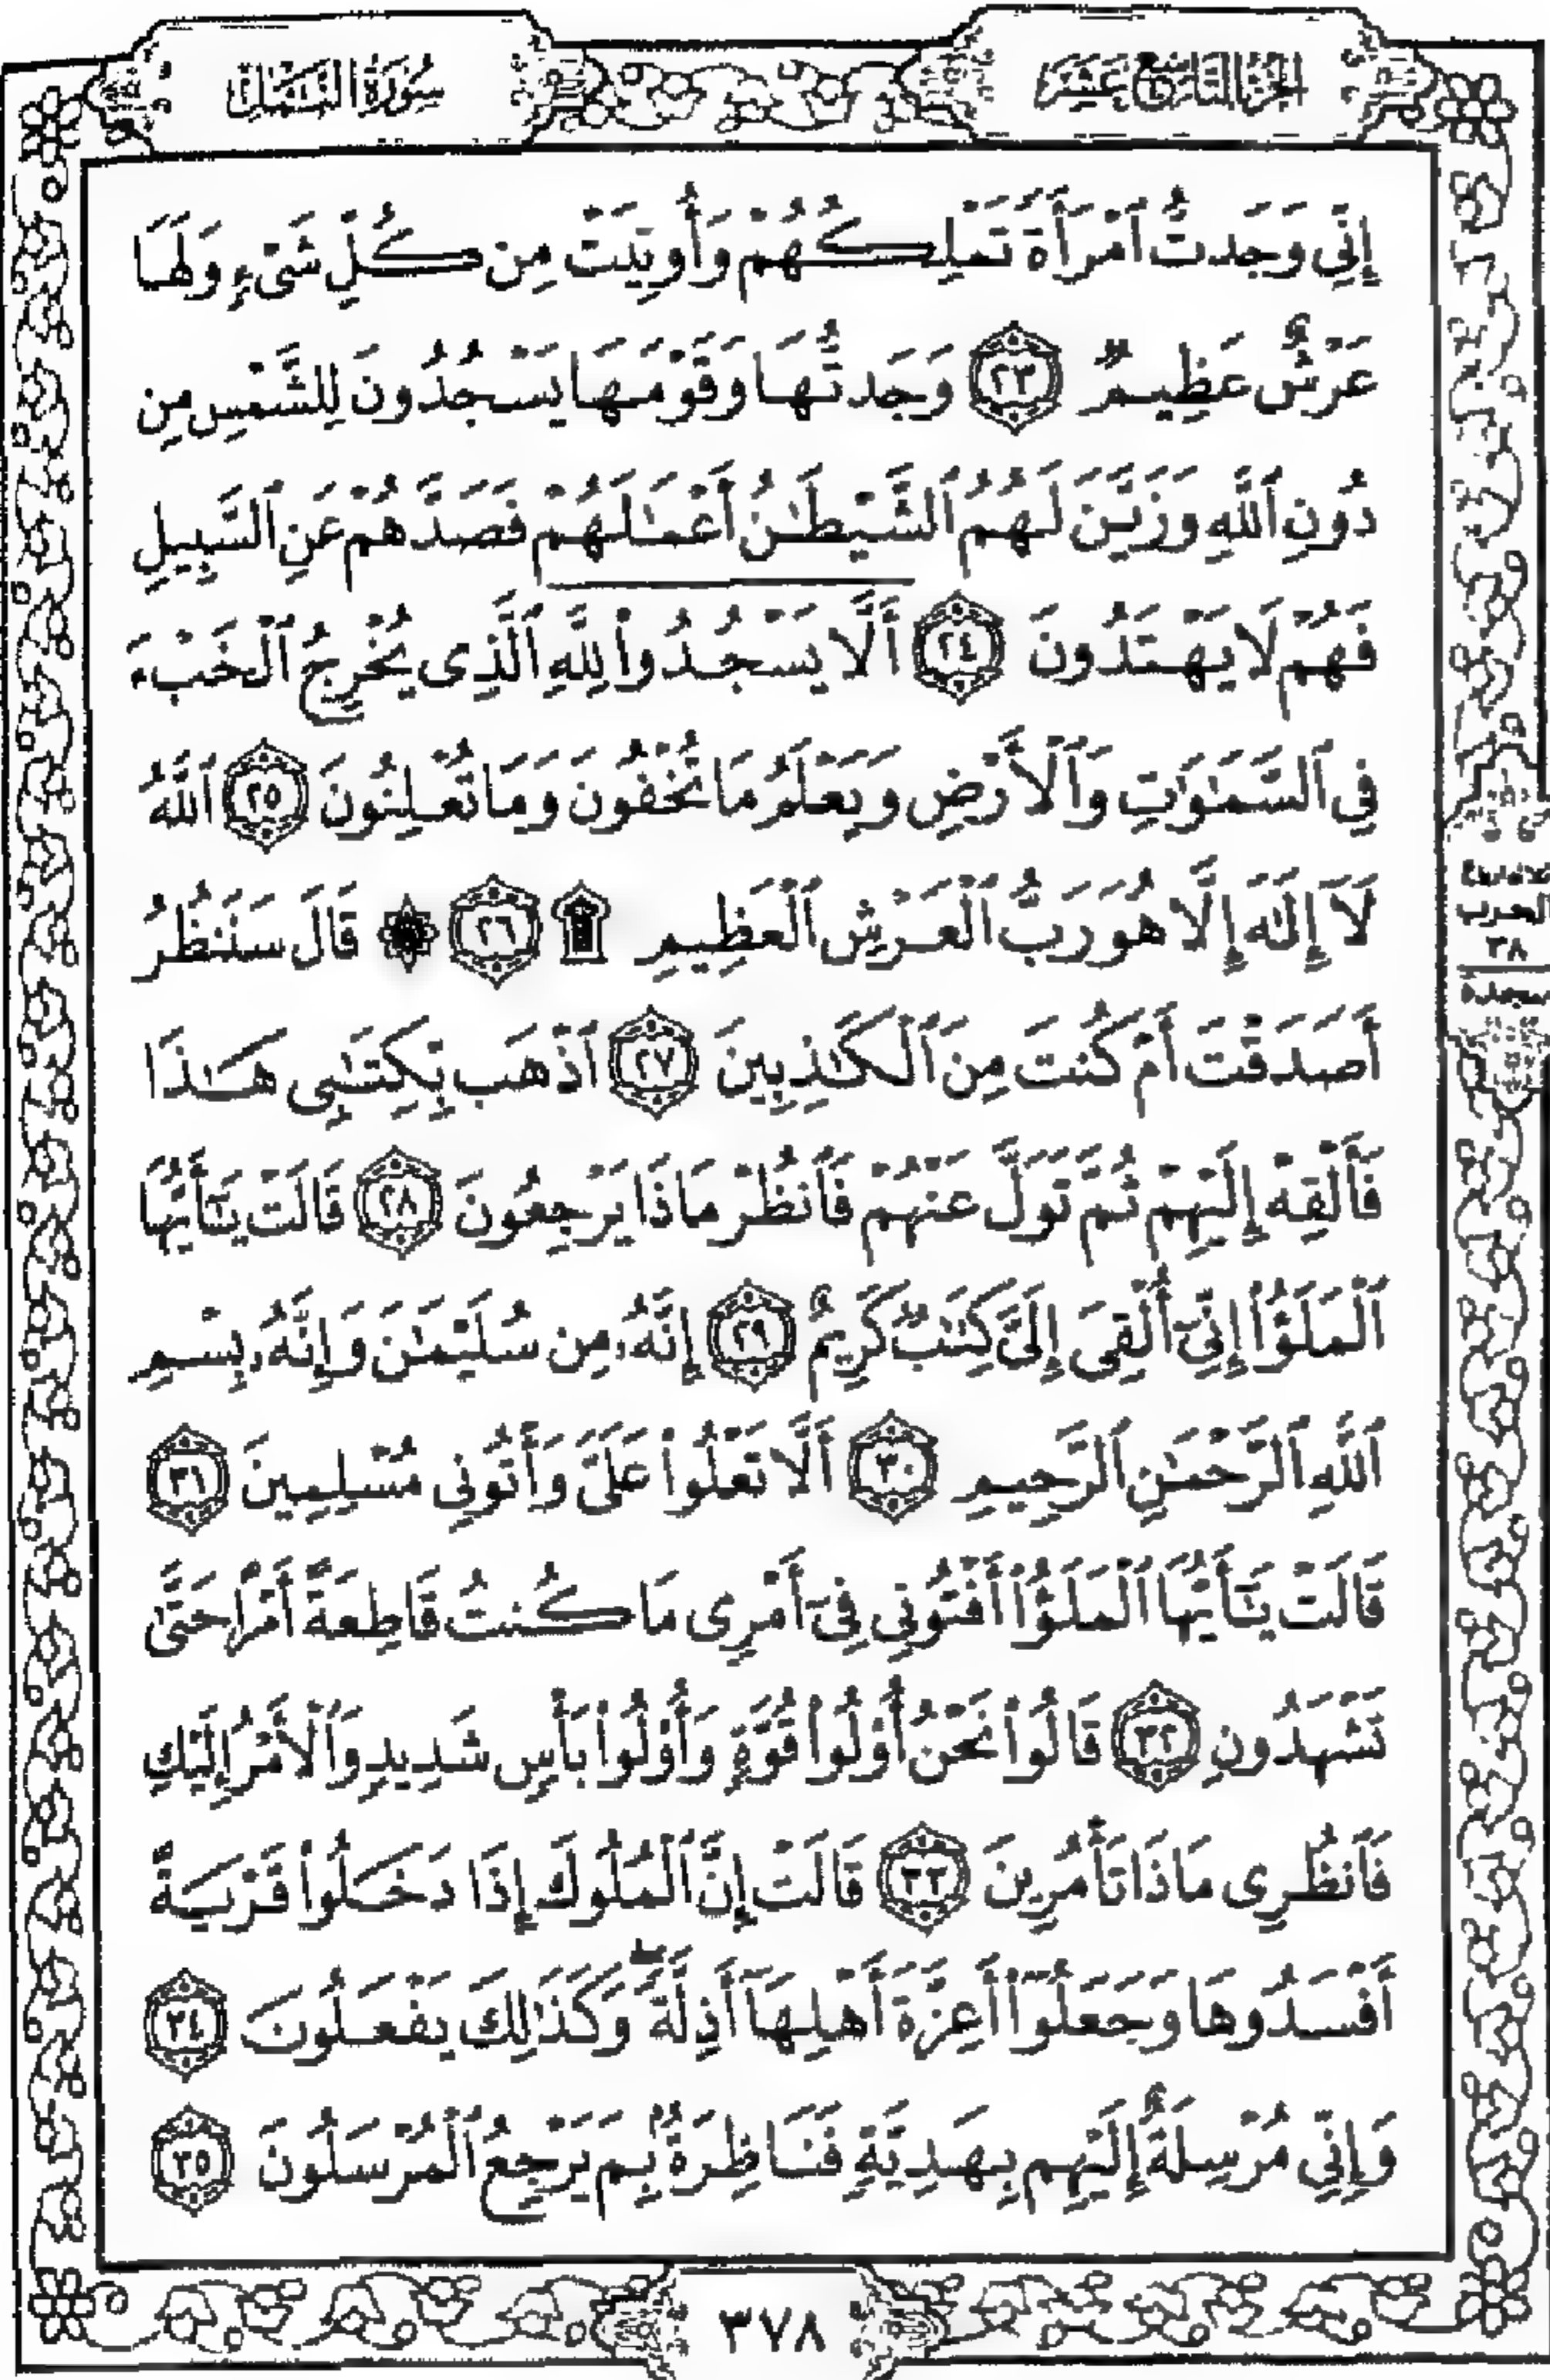 الجزء التاسع عشر
سورة النمل
إِنِّي وَجَدتُّ ٱمْرَأَةً تَمْلِكُهُمْ وَأُوتِيَتْ مِن كُلِّ شَىْءٍ وَلَهَا
عَرْشٌ عَظِيمٌ ٢٣ وَجَدتُّهَا وَقَوْمَهَا يَسْجُدُونَ لِلشَّمْسِ مِن
دُونِ ٱللَّهِ وَزَيَّنَ لَهُمُ ٱلشَّيْطَٰنُ أَعْمَٰلَهُمْ فَصَدَّهُمْ عَنِ ٱلسَّبِيلِ
فَهُمْ لَا يَهْتَدُونَ ٢٤ أَلَّا يَسْجُدُوا۟ لِلَّهِ ٱلَّذِى يُخْرِجُ ٱلْخَبْءَ
فِي ٱلسَّمَٰوَٰتِ وَٱلْأَرْضِ وَيَعْلَمُ مَا تُخْفُونَ وَمَا تُعْلِنُونَ ٢٥ ٱللَّهُ
لَآ إِلَٰهَ إِلَّا هُوَ رَبُّ ٱلْعَرْشِ ٱلْعَظِيمِ ۩ ٢٦ ۞ قَالَ سَنَنظُرُ
الحزب
٣٨
سجدة
أَصَدَقْتَ أَمْ كُنتَ مِنَ ٱلْكَٰذِبِينَ ٢٧ ٱذْهَب بِّكِتَٰبِى هَٰذَا
فَأَلْقِهْ إِلَيْهِمْ ثُمَّ تَوَلَّ عَنْهُمْ فَٱنظُرْ مَاذَا يَرْجِعُونَ ٢٨ قَالَتْ يَٰٓأَيُّهَا
ٱلْمَلَؤُا۟ إِنِّىٓ أُلْقِىَ إِلَىَّ كِتَٰبٌ كَرِيمٌ ٢٩ إِنَّهُۥ مِن سُلَيْمَٰنَ وَإِنَّهُۥ بِسْمِ
ٱللَّهِ ٱلرَّحْمَٰنِ ٱلرَّحِيمِ ٣٠ أَلَّا تَعْلُوا۟ عَلَىَّ وَأْتُونِى مُسْلِمِينَ ٣١
قَالَتْ يَٰٓأَيُّهَا ٱلْمَلَؤُا۟ أَفْتُونِى فِىٓ أَمْرِى مَا كُنتُ قَاطِعَةً أَمْرًا حَتَّىٰ
تَشْهَدُونِ ٣٢ قَالُوا۟ نَحْنُ أُو۟لُوا۟ قُوَّةٍ وَأُو۟لُوا۟ بَأْسٍ شَدِيدٍ وَٱلْأَمْرُ إِلَيْكِ
فَٱنظُرِى مَاذَا تَأْمُرِينَ ٣٣ قَالَتْ إِنَّ ٱلْمُلُوكَ إِذَا دَخَلُوا۟ قَرْيَةً
أَفْسَدُوهَا وَجَعَلُوٓا۟ أَعِزَّةَ أَهْلِهَآ أَذِلَّةً ۖ وَكَذَٰلِكَ يَفْعَلُونَ ٣٤
وَإِنِّى مُرْسِلَةٌ إِلَيْهِم بِهَدِيَّةٍ فَنَاظِرَةٌۢ بِمَ يَرْجِعُ ٱلْمُرْسَلُونَ ٣٥
٣٧٨